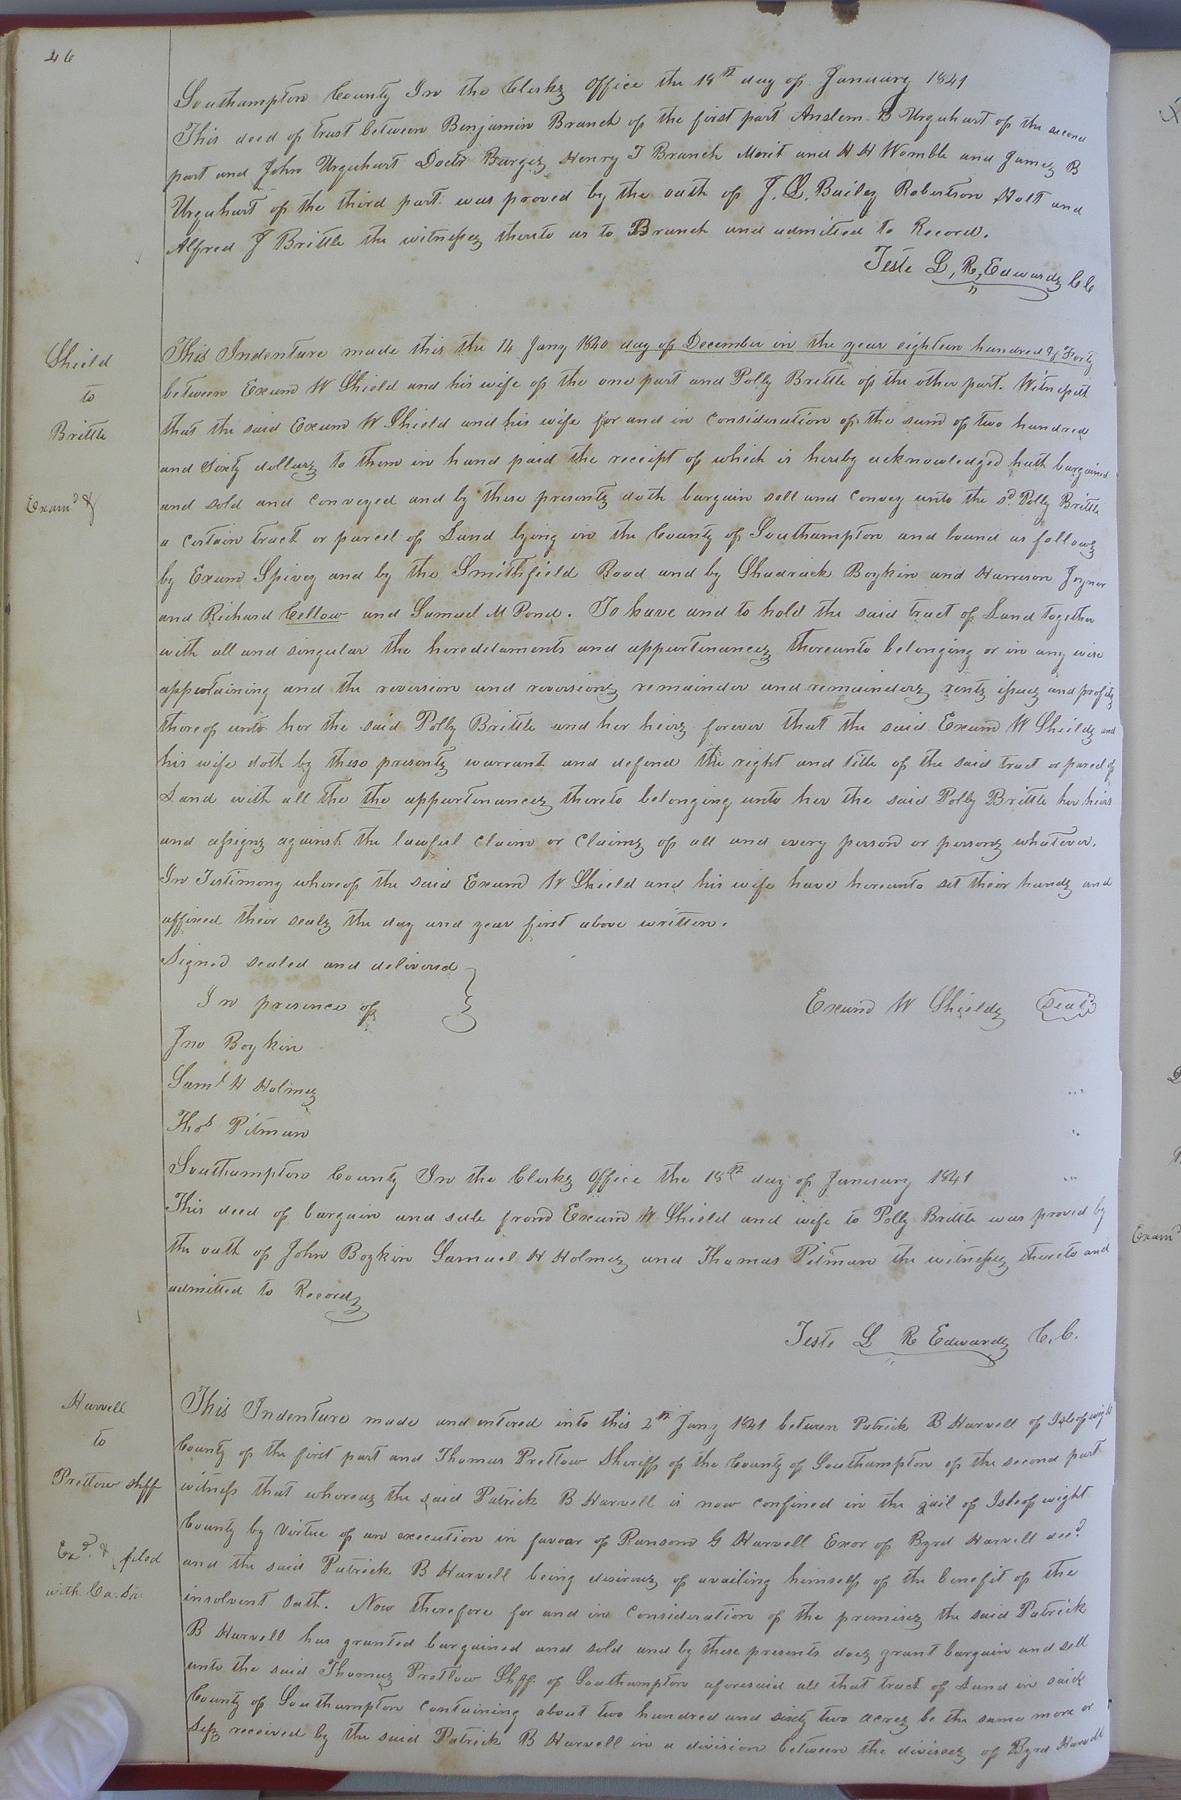 46
Southampton County In the Clerks Office the 18th day of January 1841
This deed of trust between Benjamin Branch of the first part Anslem B Urquhart of the second
part and John Urquhart Doctr Barges Henry J Branch Merit and H H Womble and James B
Urquhart of the third part was proved by the oath of J. L. Bailey Robertson Holt and
Alfred J Brittle the witnesses thereto as to Branch and admitted to Record.
Teste L, R, Edwards CC
Shield
to
Brittle
Examd &
This Indenture made this the 14 Jany 1840 day of December in the year eighteen hundred & Forty
between Exum W Shield and his wife of the one part and Polly Brittle of the other part. Witnesseth
that the said Exum W Shield and his wife for and in consideration of the sum of two hundred
and Sixty dollars to them in hand paid the receipt of which is hereby acknowledged hath bargained
and sold and conveyed and by these presents doth bargain sell and convey unto the sd Polly Brittle
a certain tract or parcel of Land lying in the County of Southampton and bound as follows
by Exum Spivey and by the Smithfield Road and by Shadrack Boykin and Harrison Joyner
and Richard Cellow and Samuel M Pond. To have and to hold the said tract of Land together
with all and singular the heredetaments and appurtenances thereunto belonging or in any wise
appertaining and the reversion and reversions remainder and remainders rents issues and profits
thereof unto her the said Polly Brittle and her heirs forever that the said Exum W Shields and
his wife doth by these presents warrant and defend the right and title of the said tract or parcel of
Land with all the the appurtenances thereto belonging unto her the said Polly Brittle her heirs
and assigns against the lawful claim or claims of all and every person or persons whatever.
In Testimony whereof the said Exum W Shield and his wife have hereunto set their hands and
affixed their seals the day and year first above written.
Signed sealed and delivered
In presence of
Exum W Shields Seal
Jno Boykin
Saml H Holmes
Thos Pitman
Southampton County In the Clerks Office the 18th day of January 1841
This deed of bargain and sale from Exum W Shield and wife to Polly Brittle was proved by
the oath of John Boykin Samuel H Holmes and Thomas Pitman the witnesses thereto and
admitted to Record
Teste L R Edwards C.C.
Harvell
to
Pretlow Shff
Exd. & filed
with Ca. Sa.
This Indenture made and entered into this 2nd Jany 1841 between Patrick B Harvell of Isle of wight
County of the first part and Thomas Pretlow Sheriff of the County of Southampton of the second part
witness that whereas the said Patrick B Harvell is now confined in the jail of Isle of wight
County by virtue of an execution in favour of Ransom G Harvell Exor of Byrd Harvell decd
and the said Patrick B Harvell being desirous of availing himself of the benefit of the
insolvent Oath. Now therefore for and in Consideration of the premises the said Patrick
B Harvell has granted bargained and sold and by these presents does grant bargain and sell
unto the said Thomas Pretlow Shff of Southampton aforesaid all that tract of Land in said
County of Southampton containing about two hundred and sixty two acres be the same more or
Less received by the said Patrick B Harvell in a division between the divisees of Byrd Harvell
Examd